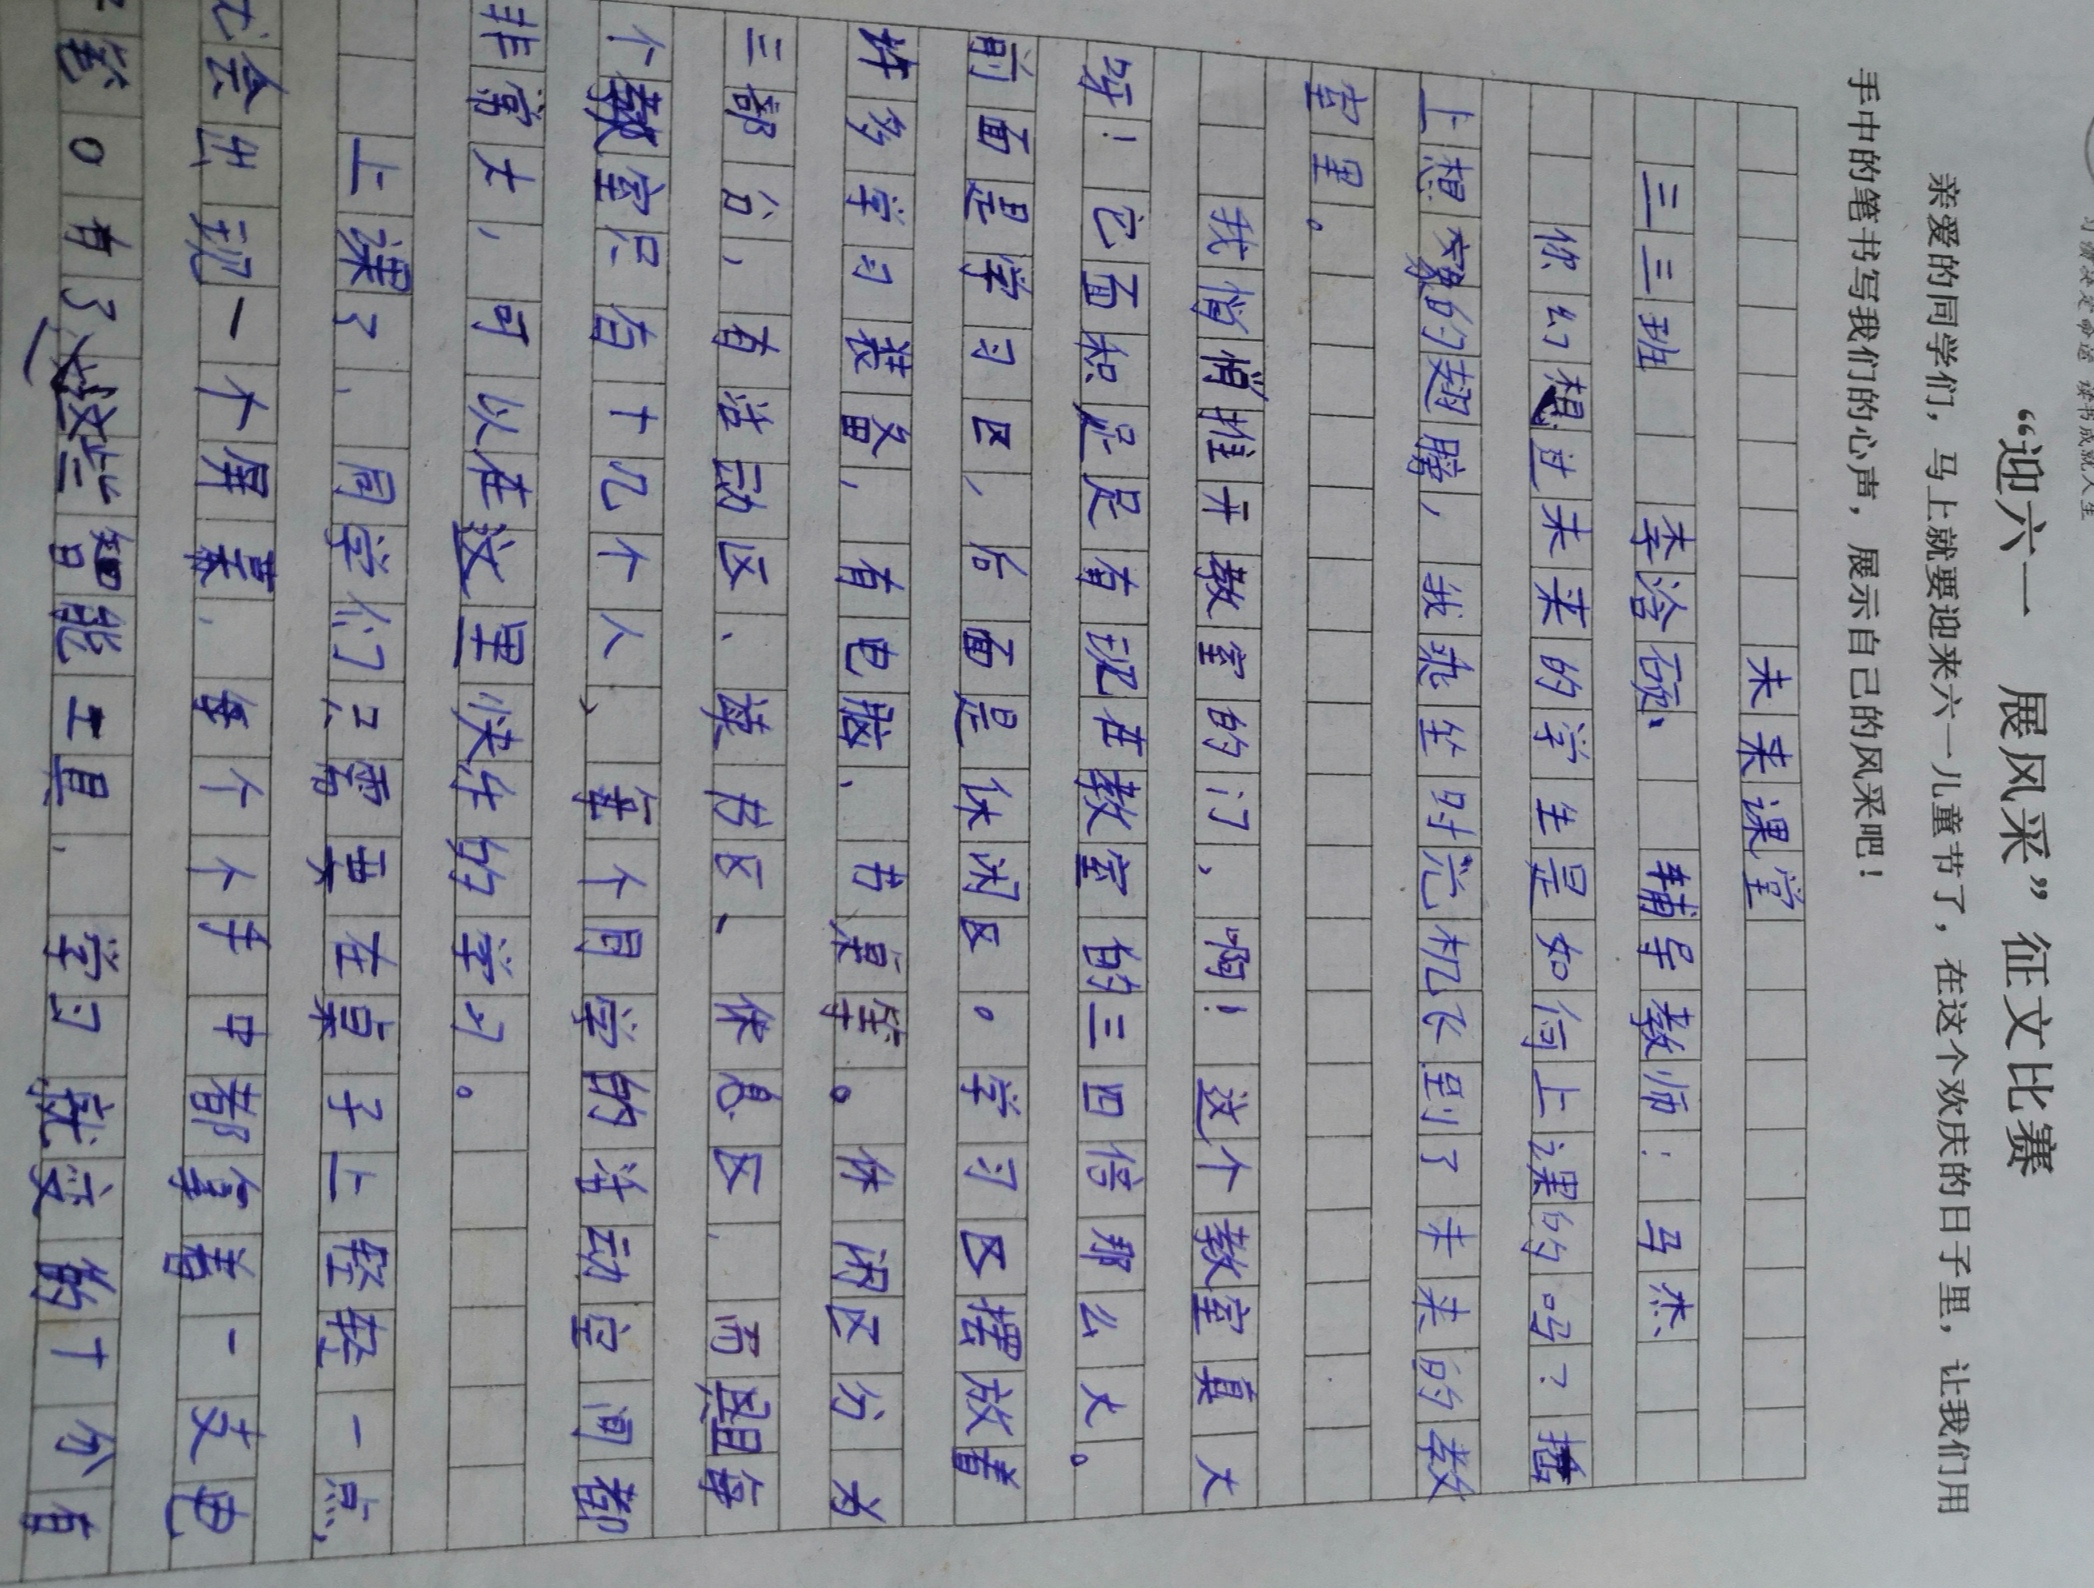 习惯决定命运 读书成就人生
“迎六一 展风采”征文比赛
亲爱的同学们，马上就要迎来六一儿童节了，在这个欢庆的日子里，让我们用
手中的笔书写我们的心声，展示自己的风采吧！
未来课堂
三三班 李洽硕 辅导教师：马杰
你幻想过未来的学生是如何上课的吗？插
上想象的翅膀，我乘坐时光机飞到了未来的教
室里。
我悄悄推开教室的门，啊！这个教室真大
呀！它面积足足有现在教室的三四倍那么大。
前面是学习区，后面是休闲区。学习区摆放着
许多学习装备，有电脑、书桌等。休闲区分为
三部分，有活动区、读书区、休息区，而且每
个教室只有十几个人，每个同学的活动空间都
非常大，可以在这里快乐的学习。
上课了，同学们只需要在桌子上轻轻一点，
就会出现一个屏幕，每个个手中都拿着一支电
笔。有了这些智能工具，学习就变的十分有